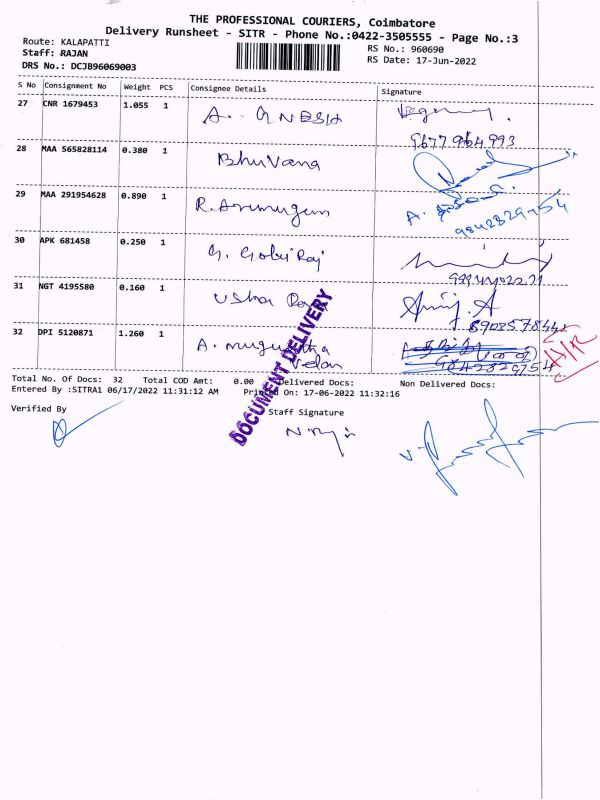 THE PROFESSIONAL COURIERS, Coimbatore
Delivery Runsheet - SITR - Phone No.:0422-3505555 - Page No.:3
Route: KALAPATTI
RS No.: 960690
Staff: RAJAN
RS Date: 17-Jun-2022
DRS No.: DCJB96069003
S No Consignment No Weight PCS Consignee Details Signature
27 CNR 1679453 1.055 1 A. GNESH
9677 964 993
28 MAA 565828114 0.380 1 Bhuvana
29 MAA 291954628 0.890 1 R. Arumugam
9842829754
30 APK 681458 0.250 1 G. Gobi Raj
31 NGT 4195580 0.160 1 Usha
8903578442
32 DPI 5120871 1.260 1 A.
Velan
Total No. Of Docs: 32 Total COD Amt: 0.00 Delivered Docs: Non Delivered Docs:
Entered By :SITRA1 06/17/2022 11:31:12 AM Printed On: 17-06-2022 11:32:16
Verified By
Staff Signature
DOCUMENT DELIVERY